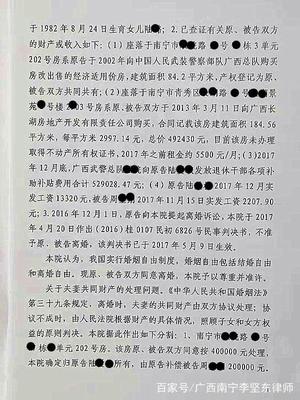 于 1982 年 8 月 24 日生育女儿陆 ；2.已查证有关原、被告双方
的财产或收入如下：（1）座落于南宁市 路 号 栋 3 单元
202 号房系原告于 2002 年向中国人民武装警察部队广西总队购买
房改出售的经济适用价房，建筑面积 84.2 平方米，产权登记为原、
被告双方共同共有；（2）座落于南宁市青秀区 路 号 景
苑 号楼 2 03 号房系原、被告双方于 2013 年 3 月 11 日向广西长
湖房地产开发有限责任公司购买，合同记载该房建筑面积 184.56
平方米，每平方米 2997.14 元，总价 492430 元，目前该房未办理
取得不动产所有权证书，2017 年之前租金约 5500 元/月；（3）2017
年 12 月底，广西武警总队 向原告陆 发放退休干部各项补
助补贴费用合计 529028.47 元；（4）原告陆 2017 年 12 月实
发工资 13320 元，被告 2017 年 11 月 15 日实发工资 2207.90
元；3.2016 年 12 月 1 日，原告向本院提起离婚诉讼，本院于 2017
年 4 月 20 日作出（2016）桂 0107 民初 6826 号民事判决书，不准
予原、被告离婚，该判决书已于 2017 年 5 月 9 日生效。
本院认为，我国实行婚姻自由制度，婚姻自由包括结婚自由
和离婚自由。现原、被告双方同意离婚，本院予以尊重并准许。
关于夫妻共同财产的处理问题。《中华人民共和国婚姻法》
第三十九条规定，离婚时，夫妻的共同财产由双方协议处理；协
议不成时，由人民法院根据财产的具体情况，照顾子女和女方权
益的原则判决。本院据此作出如下分割：1、南宁市 路 号
栋 单元 202 号房。该房原、被告双方同意按 400000 元处理，
本院确定归原告陆 所有，由原告补偿被告周 200000 元。
百家号/广西南宁李坚东律师